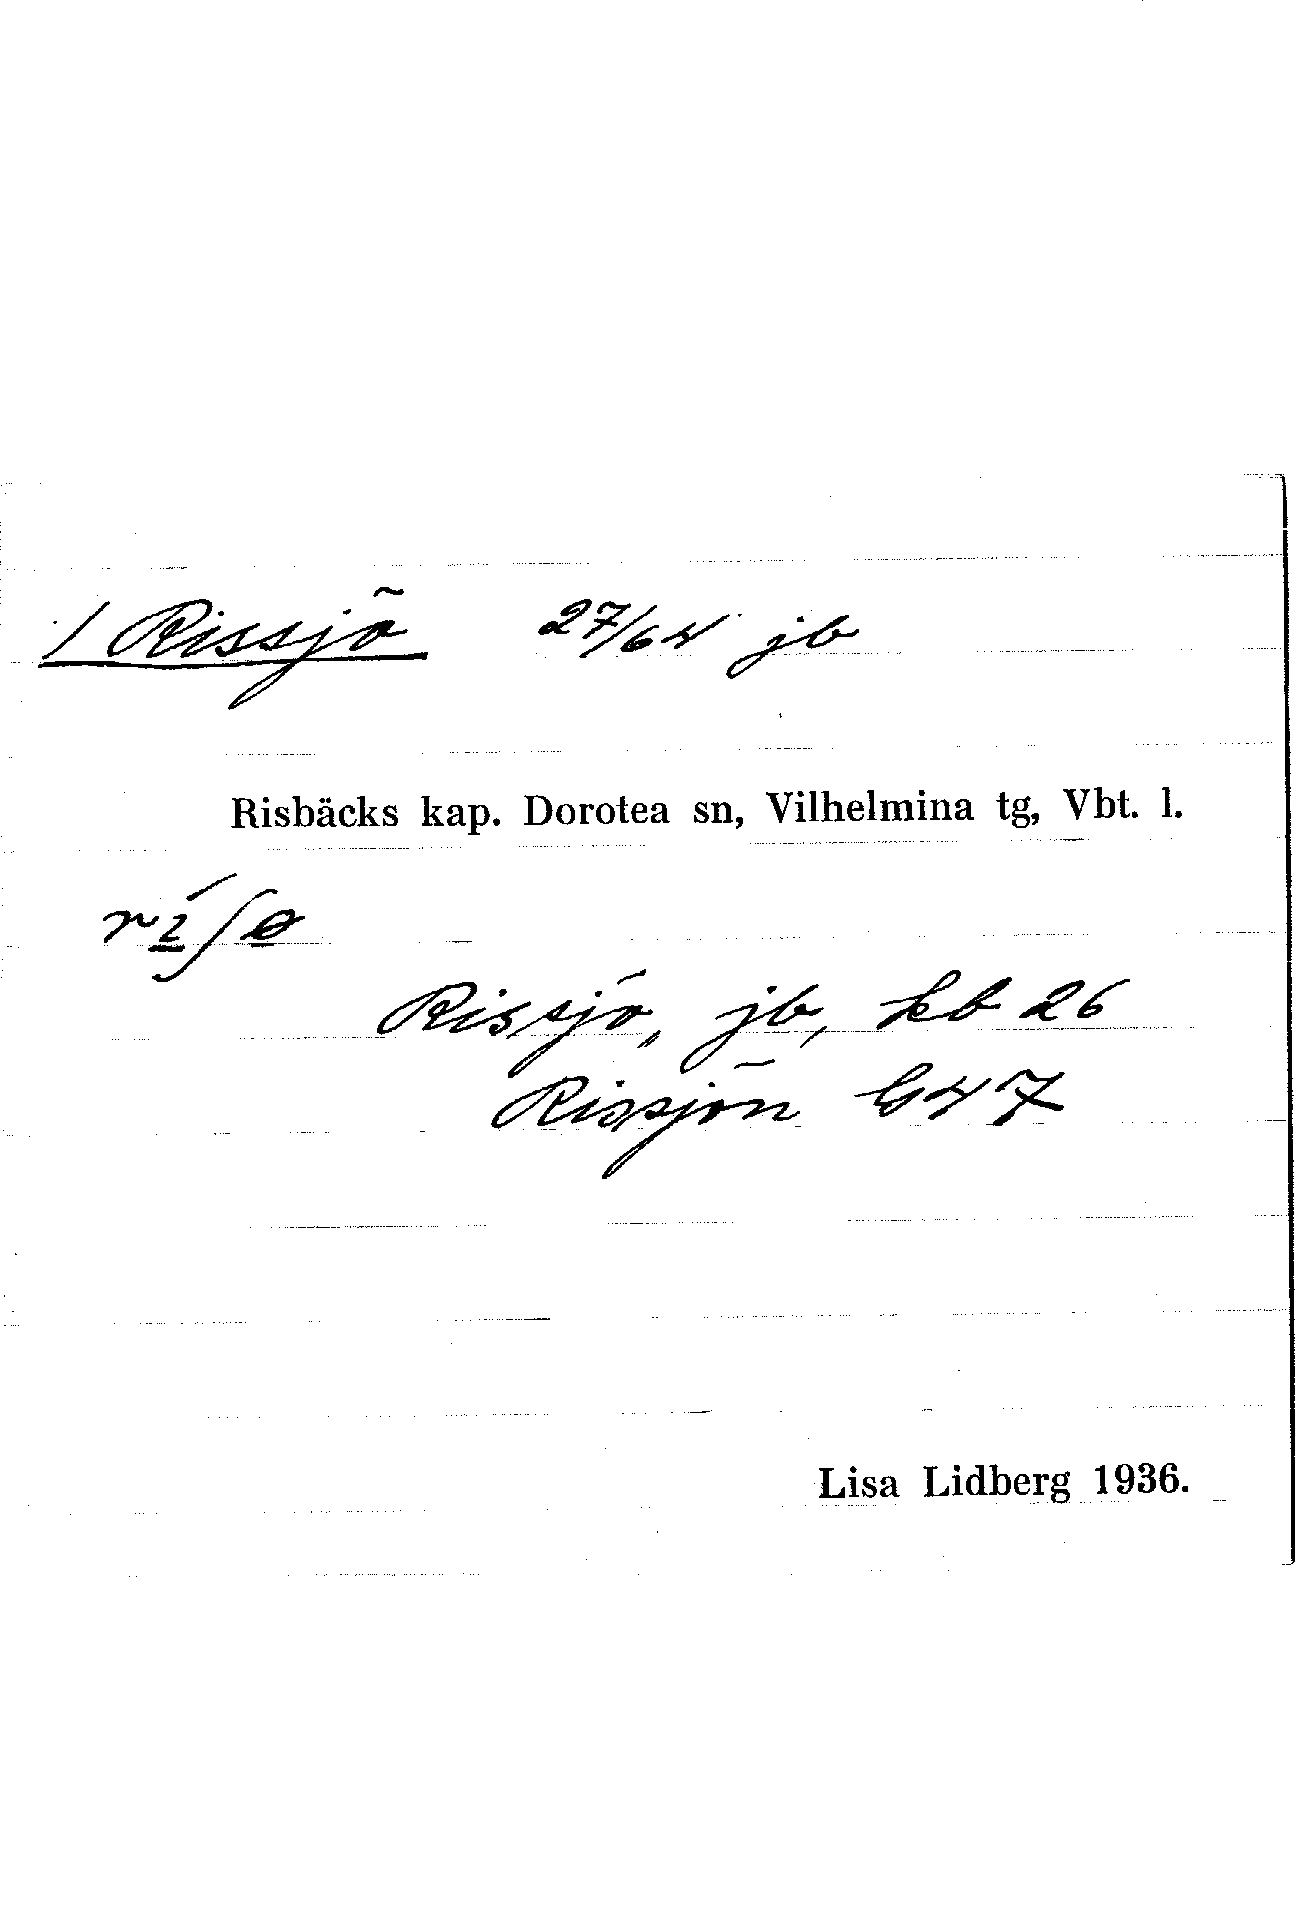 / Rissjö 27/64 jb
Risbäcks kap. Dorotea sn, Vilhelmina tg, Vbt. l.
Rissjö, jb, kb 26
Rissjön G47
Lisa Lidberg 1936.